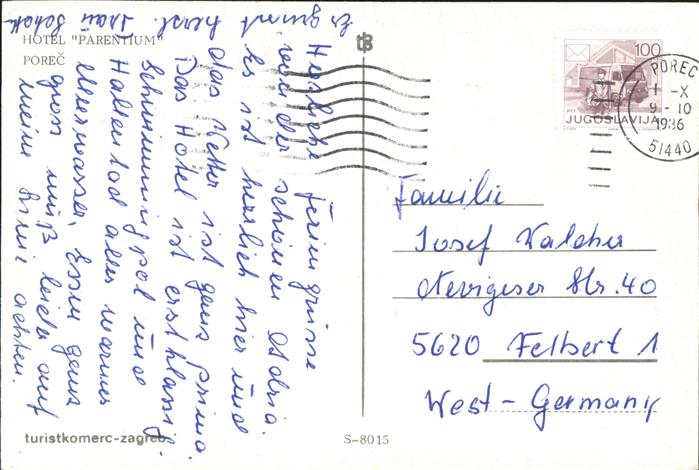 HOTEL "PARENTIUM"
POREČ
Herzliche Feriengrüsse
von der schönen Adria.
Es ist herrlich hier und
das Wetter ist ganz prima.
Das Hotel ist erstklassig.
Schwimmingpol und
Hallenbad alles warmes
Meerwasser, Essen ganz
gross muß leider auf
meine Linie achten.
Es grüsst
herzl. Frau
100
PTT
JUGOSLAVIJA
POREČ
1 -X
9-10
1986
51440
Familie
Josef Walcher
Nevigeser Str. 40
5620 Felbert 1
West-Germany
turistkomerc-zagreb
S-8015